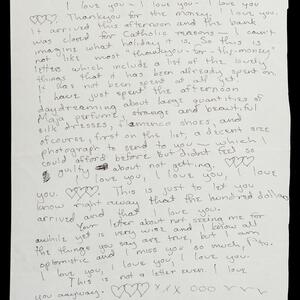 I love you — I love you — I love you
♡♡♡ Thankyou for the money. I love you.
It arrived this afternoon and the bank
was closed for Catholic reasons — I can't
imagine what holiday it is. So this is
not like most "thankyou-for-the-money"
letters which include a list of the lovely
things that it has been already spent on
It has not been spent at all yet.
I have just spent the afternoon
daydreaming about large quantities of
Maja perfume, strange and beautiful
silk dresses, flamenco shoes, and
of course, first on the list, a decent size
photograph to send to you — which I
could afford before but didn't feel so
guilty about not getting.
I love you, I love you, I love
you. ♡♡♡ This is just to let you
know right away that the hundred dollars
arrived and that I love you.
Your letter about not seeing me for
awhile yet is very wise and I know all
the things you say are true, but I am
optomistic and I miss you so much,
I love you, I love you, I love you.
This is not a letter even. I love
you anyway. ♡♡♡